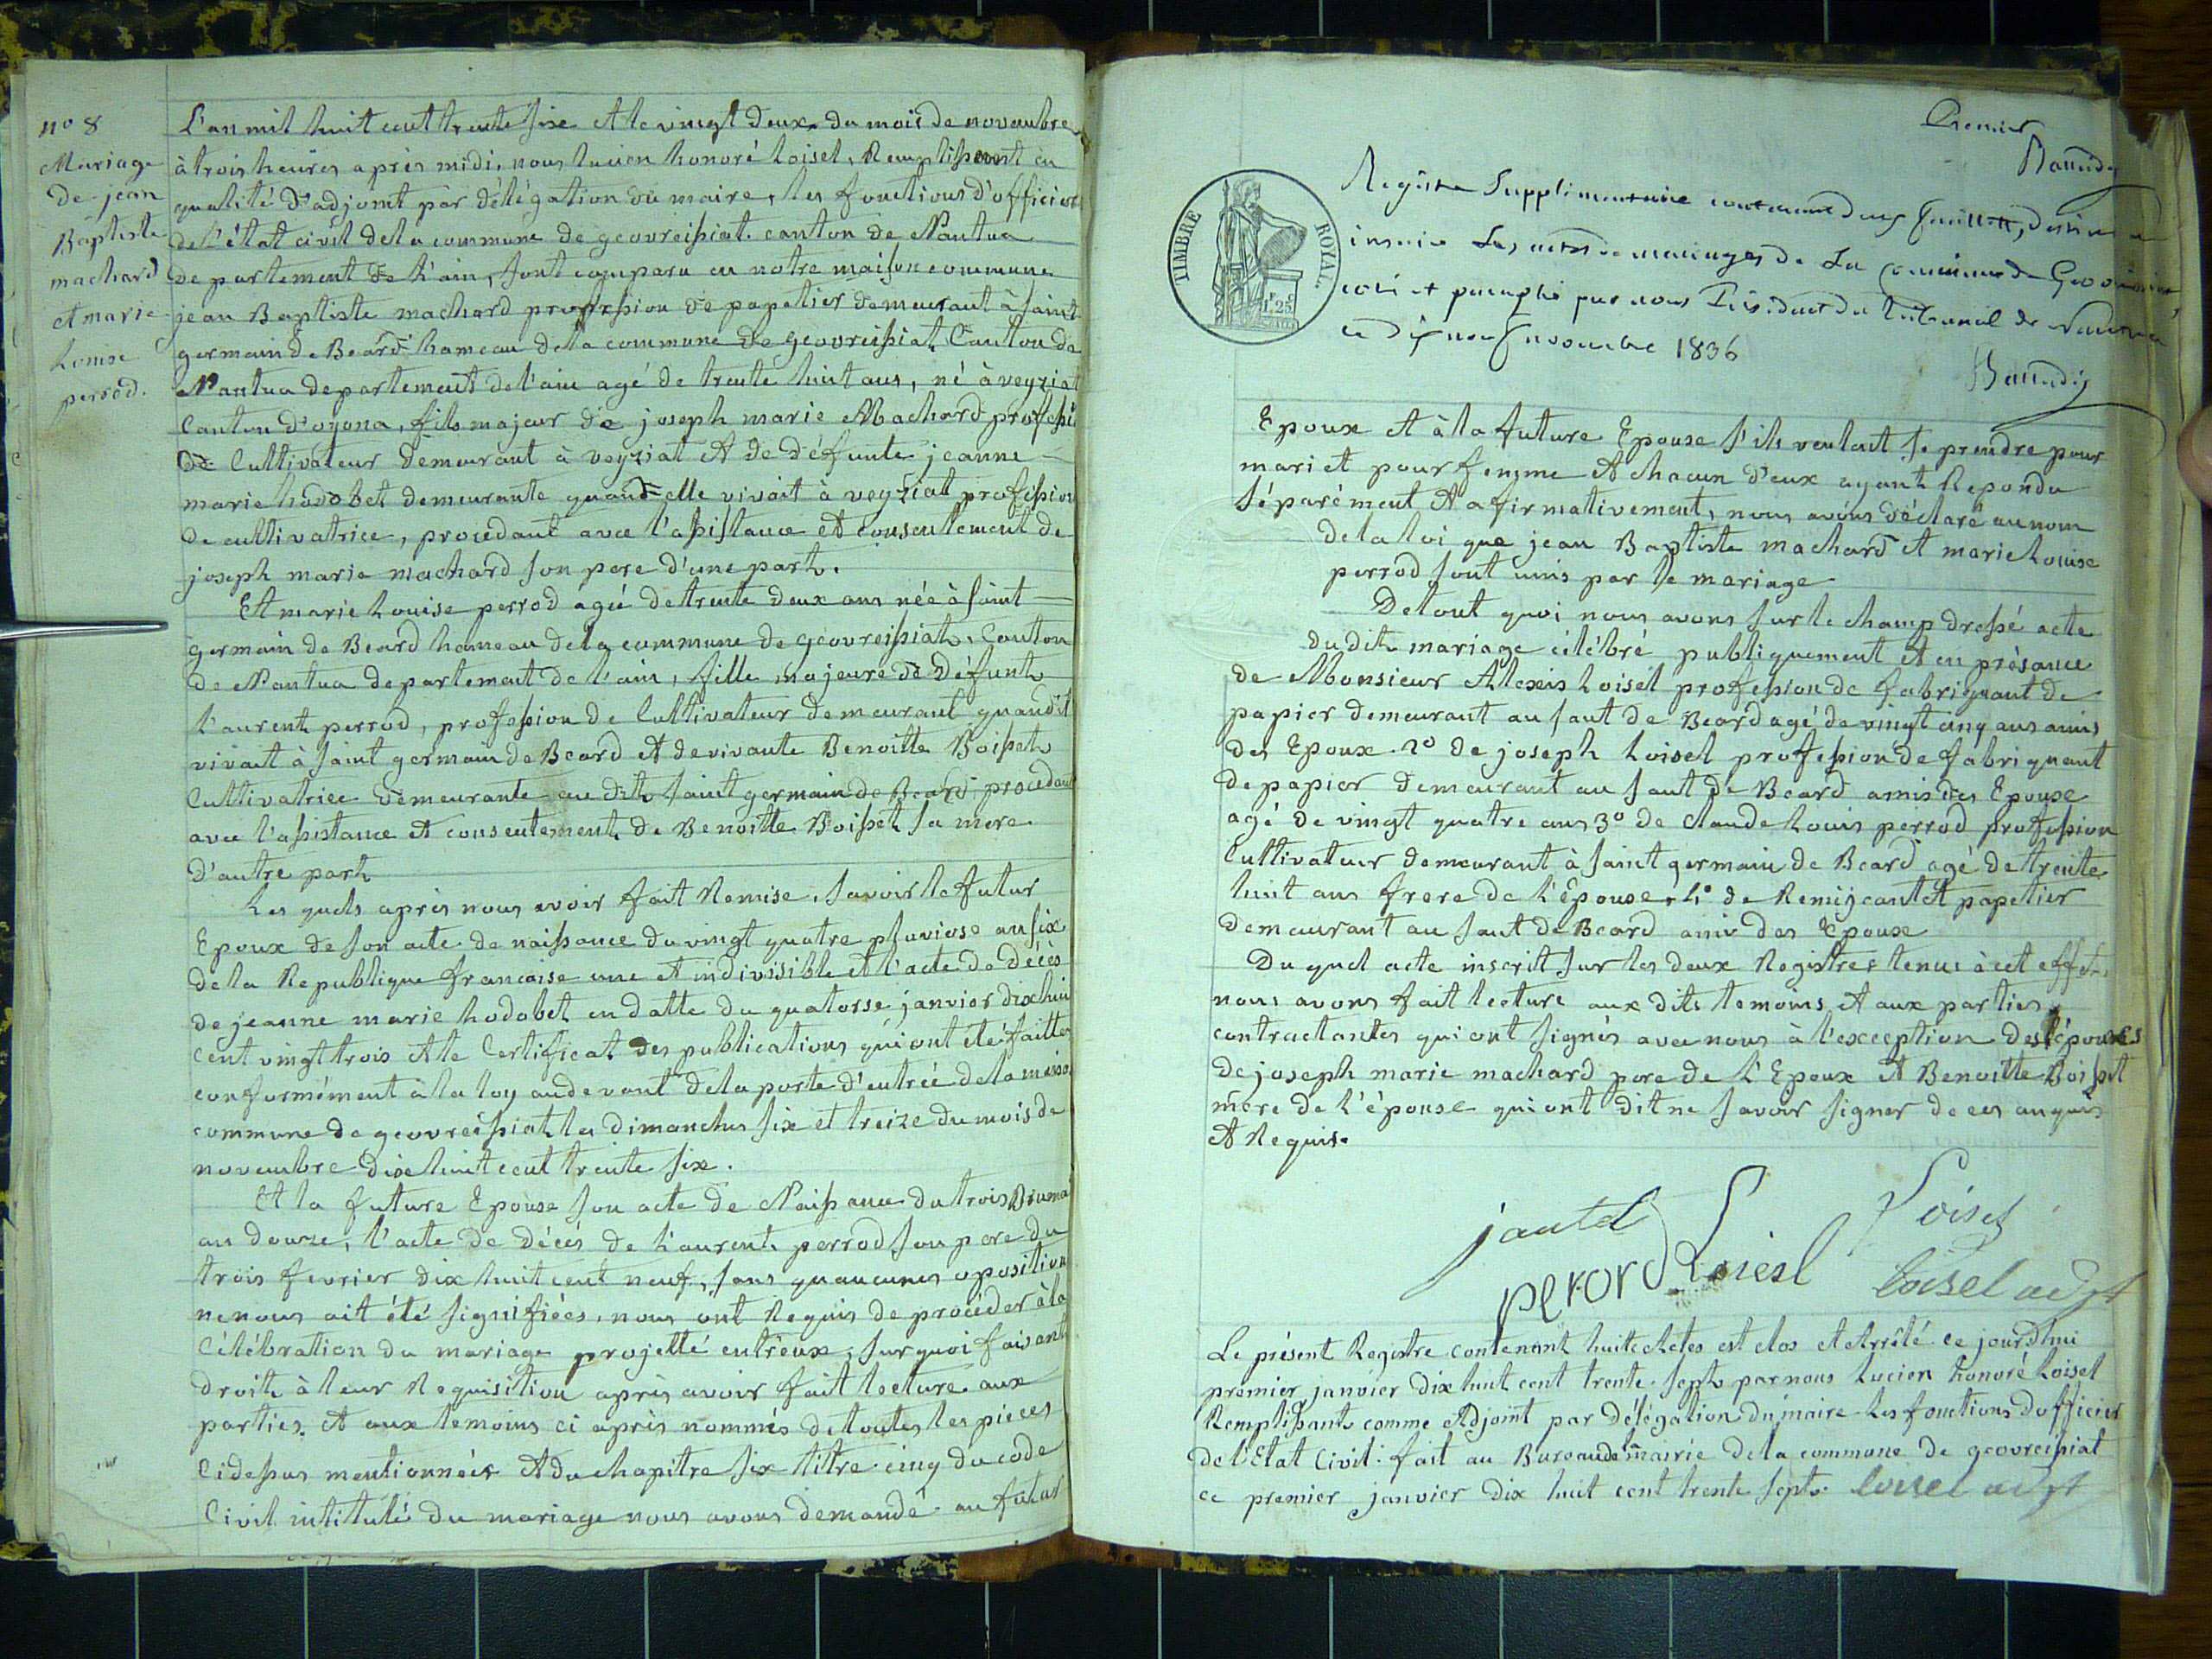 n° 8
Mariage
de jean
Baptiste
machard
et marie
Louise
perrod.
L'an mil huit cent trente six et le vingt deux du mois de novembre
à trois heures après midi, nous lucien honoré Loisel, Remplissant en
qualité d'adjoint par délégation du maire, les fonctions d'officier
de l'état civil de la commune de geovreissiat canton de Nantua
departement de L'ain, sont comparu en notre maison commune
jean Baptiste machard profession de papetier demeurant à saint
germain de Beard hameau de la commune de geovreissiat Canton de
Nantua departement de l'ain agé de trente huit ans, né à veyziat
Canton d'oyona, fils majeur de joseph marie Machard professi
de Cultivateur demeurant à veyziat et de défunte jeanne
marie hodobet demeurante quand elle vivoit à veyziat profession
de cultivatrice, procedant avec l'assistance et consentement de
joseph marie machard son pere d'une part.
Et marie Louise perrod agée de trente deux ans née à saint
germain de Beard hameau de la commune de geovreissiat. Canton
de Nantua departement de l'ain, fille majeure de Défunt
Laurent perrod, profession de Cultivateur demeurant quand il
vivait à saint germain de Beard et de vivante Benoitte Boisset
Cultivatrice demeurante au dit saint germain de Beard procedant
avec l'assistance et consentement de Benoitte Boisset sa mere
d'autre part
Les quels après nous avoir fait Remise, savoir le futur
Epoux de son acte de naissance du vingt quatre pluviose an six
de la Republique francaise une et indivisible et l'acte de Décès
de jeanne marie hodobet en datte du quatorse janvier dix huit
cent vingt trois et le Certificat des publications qui ont été faittes
conformément à la loy au devant de la porte d'entrée de la maison
commune de geovreissiat les dimanches six et treize du mois de
novembre dix huit cent trente six.
Et la future Epouse son acte de Naissance du trois Bruma
an douze, l'acte de décès de Laurent perrod son pere du
trois fevrier dix huit cent neuf, sans qu'aucunes oposition
ne nous ait été signifiées, nous ont Requis de proceder à la
Célébration du mariage projetté entr'eux, sur quoi faisant
droit à leur Requisition après avoir fait lecture aux
parties et aux temoins ci après nommés de toutes les pieces
Cidessus mentionnées et du chapitre six titre cinq du code
Civil intitulé du mariage nous avons demandé au futur
Premier
TIMBRE ROYAL.
1F.25C
Registre Supplimentaire contenant deux feuillets, destiné à
inscrire Les actes de mariages de La Commune de Geovreissiat,
coté et paraphé par nous Président du Tribunal de Nantua
ce dix neuf novembre 1836
Epoux et à la future Epouse s'ils veulent se prendre pour
mari et pour femme et chacun d'eux ayant Repondu
séparément et afirmativement, nous avons déclaré au nom
de la loi que jean Baptiste machard et marie Louise
perrod sont unis par le mariage
De tout quoi nous avons sur le champ dressé acte
du dit mariage célébré publiquement et en présance
de Monsieur Alexis Loisel profession de fabriquant de
papier demeurant au saut de Beard agé de vingt cinq ans amis
des Epoux. 2° de joseph Loisel proffession de fabriquant
de papier demeurant au saut de Beard amis des Epoux
agé de vingt quatre ans 3° de claude Louis perrod proffession
Cultivateur demeurant à saint germain de Beard agé de trente
huit ans frere de L'Epouse, 4° de Remi jeantet papetier
demeurant au saut de Beard amis des Epoux
Du quel acte inscrit sur les deux Registres tenus à cet effet
nous avons fait lecture aux dits temoins et aux parties
contractantes qui ont signés avec nous à l'exception des épouxs
de joseph marie machard pere de L'Epoux et Benoitte Boisset
mere de L'épouse qui ont dit ne savoir signer de ces enquis
et Requis.
jantet Loisel
perord Loiesl Loisel adjt
Le présent Registre contenant huit Actes est clos et Arrêté ce jourd'hui
premier janvier dix huit cent trente sept par nous Lucien honoré Loisel
Remplissant comme Adjoint par délégation du maire les fonctions d'officier
de L'Etat Civil. fait au Bureau de la mairie de la commune de geovreissiat
ce premier janvier dix huit cent trente sept. Loisel adjt